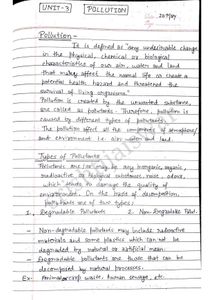 UNIT-3 POLLUTION
Pollution -
It is defined as "any undesirable change
in the physical, chemical or biological
characteristics of our air, water and land
that may affect the normal life or create a
potential hazard and threatened the
survival of living organisms."
Pollution is created by the unwanted substance,
also called as pollutants. Therefore, pollution is
caused by different types of pollutants.
The pollution affect all the components of
environment i.e. air, water and land.
Types of Pollutants -
Pollutants are any inorganic, organic,
radioactive or biological substances, noise, odour,
which tends to damage the quality of
environment. On the basis of decomposition,
pollutants are of two types;
1. Degradable Pollutants 2. Non-Degradable Pollut.
Non-degradable pollutants may include radioactive
materials and some plastics which can not be
degraded by natural or artificial mean.
Degradable pollutants are those that can be
decomposed by natural processes.
Ex- Animal crop waste, human sewage, etc.